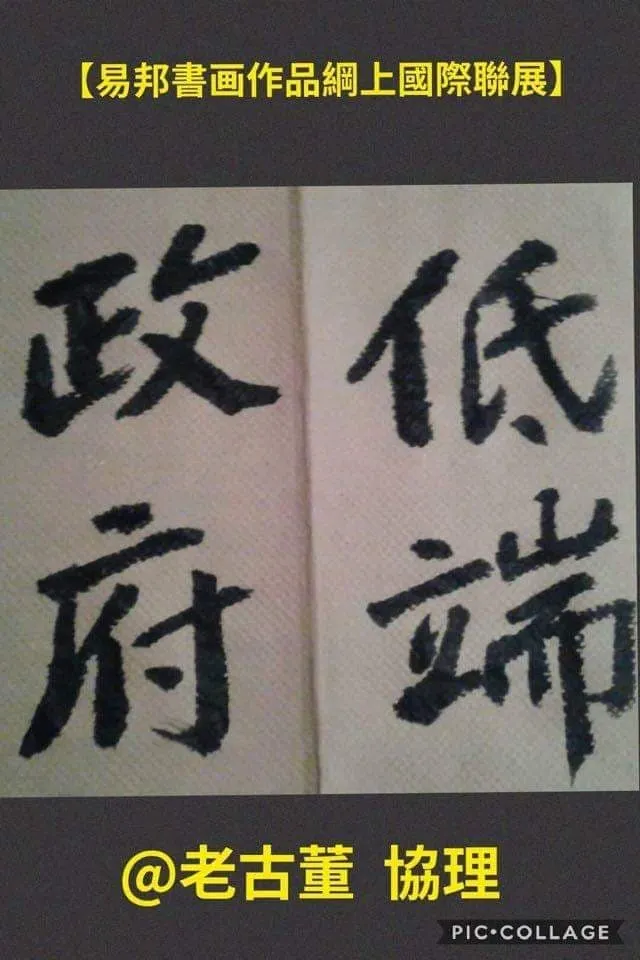 【易邦書画作品綱上國際聯展】
低端
政府
@老古董 協理
PIC•COLLAGE